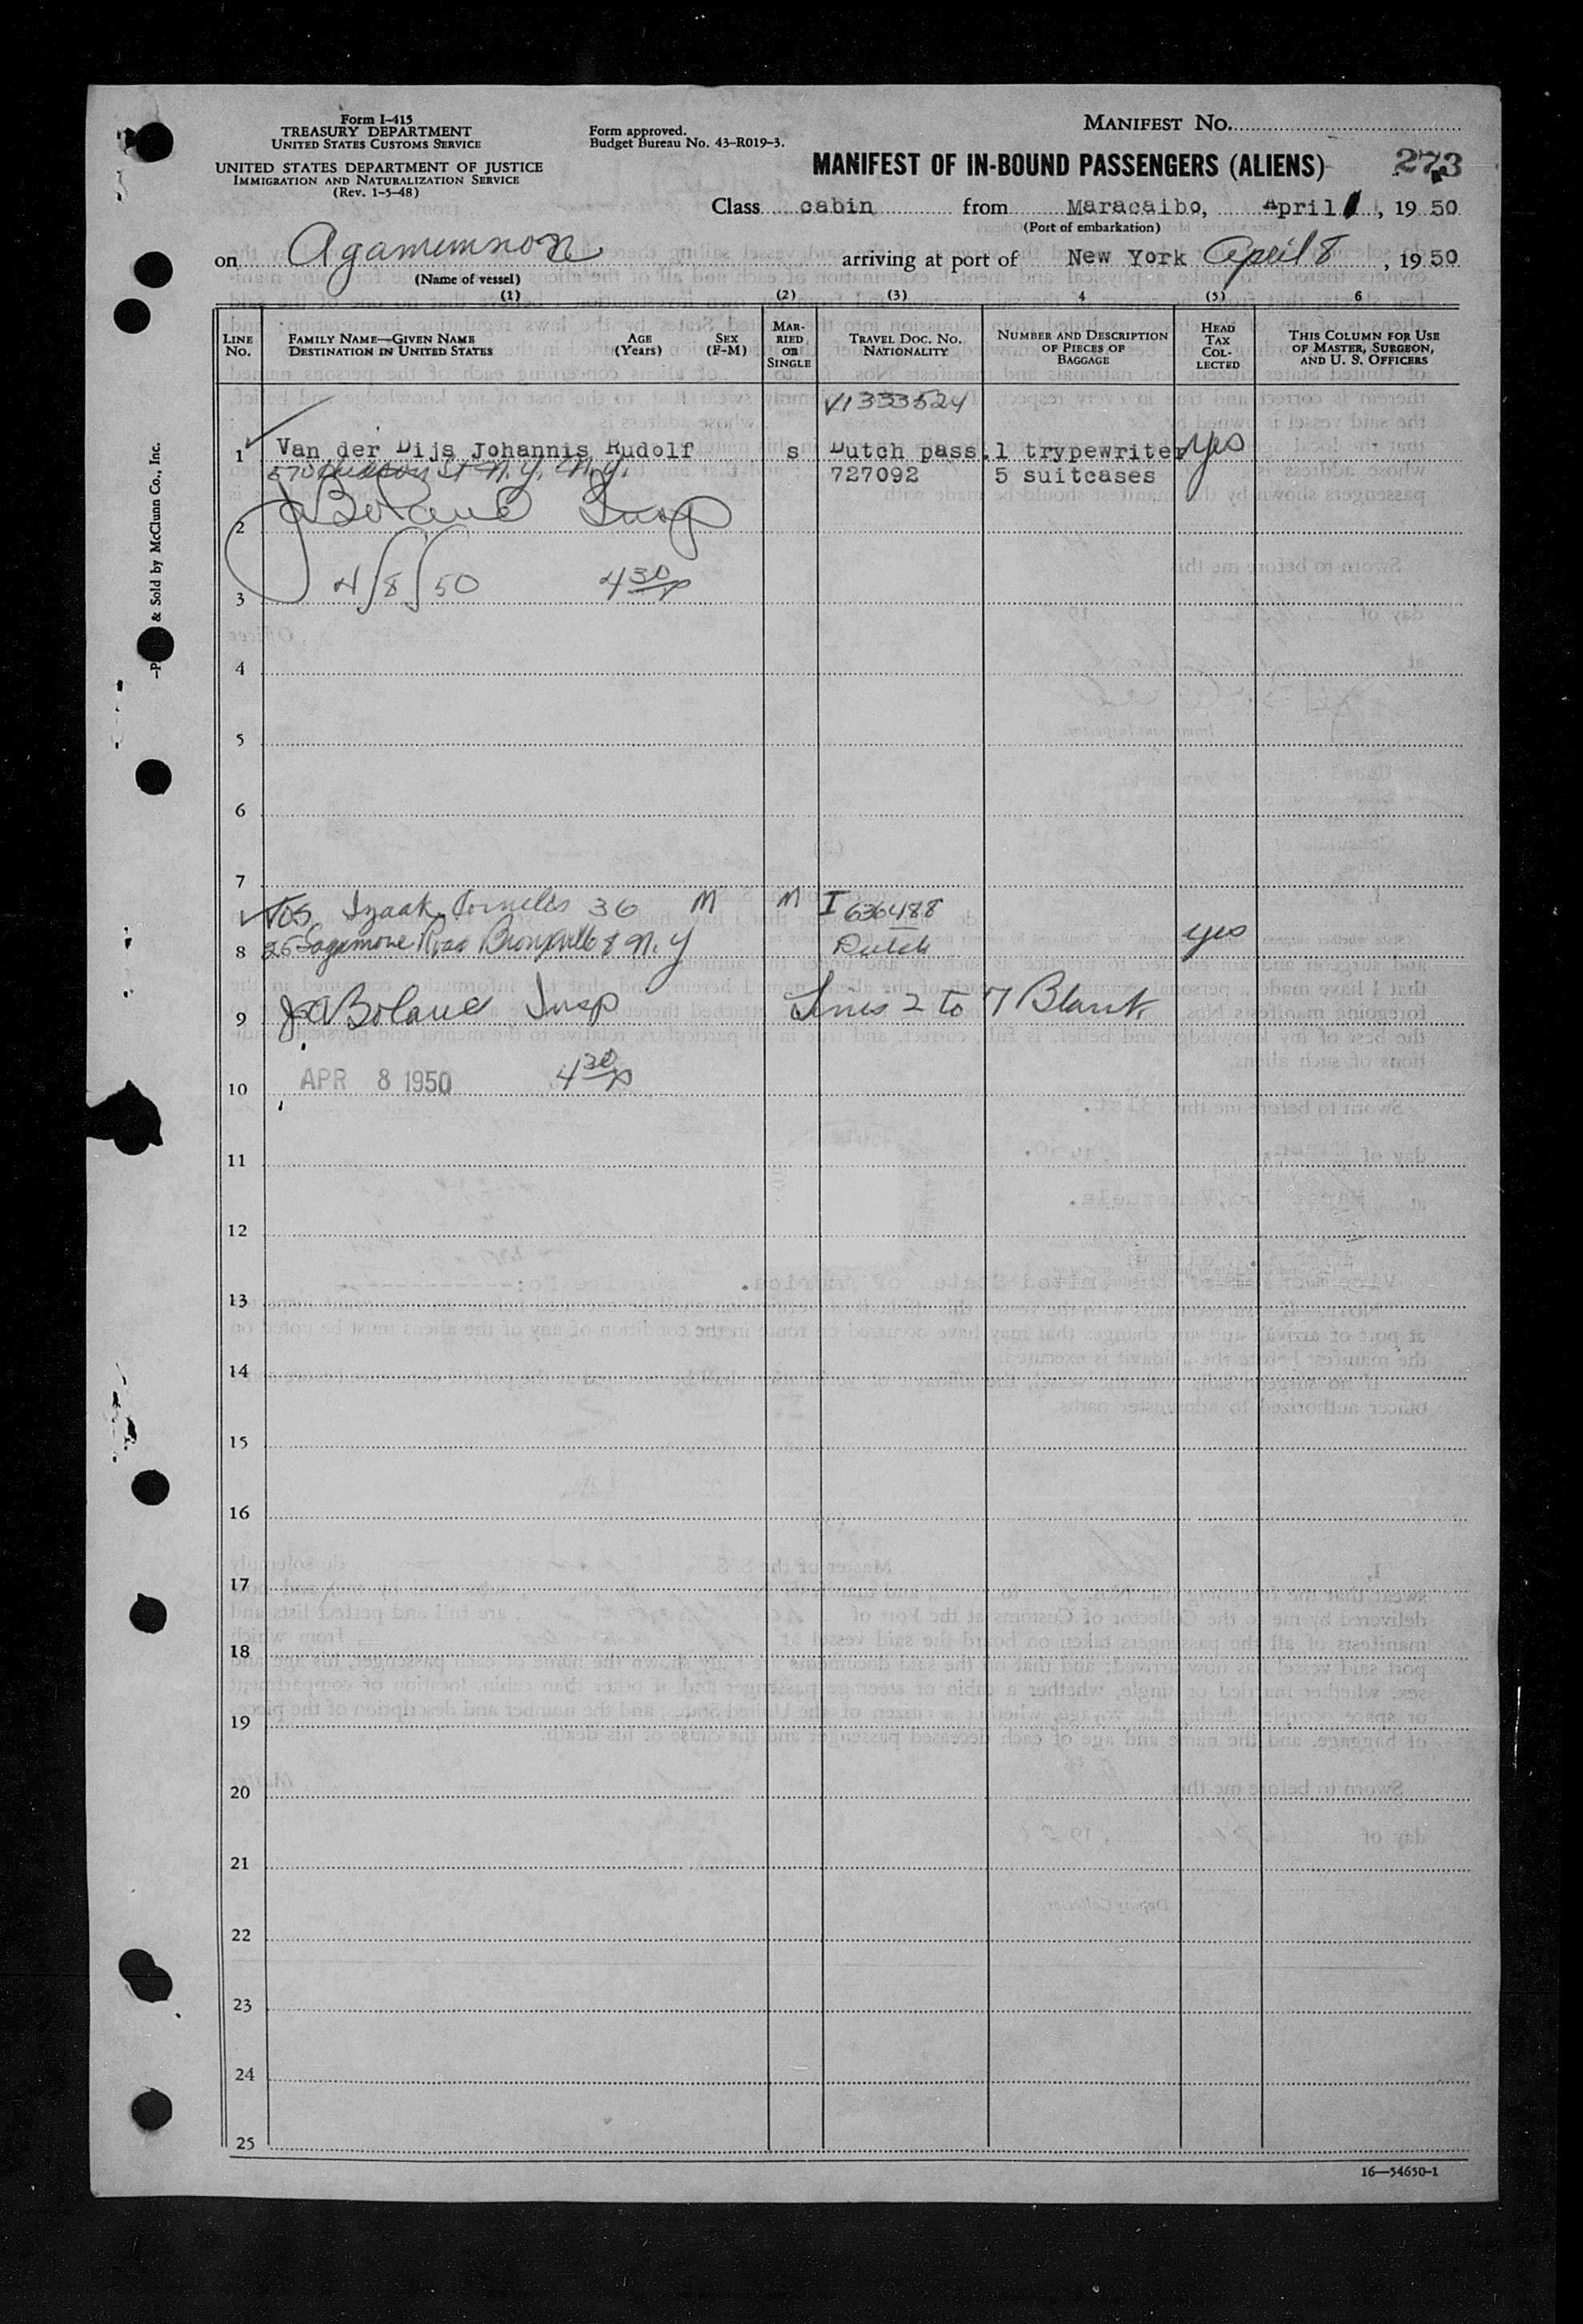 Form I-415
TREASURY DEPARTMENT
UNITED STATES CUSTOMS SERVICE
UNITED STATES DEPARTMENT OF JUSTICE
IMMIGRATION AND NATURALIZATION SERVICE
(Rev. 1-5-48)
Form approved.
Budget Bureau No. 43-R019-3.
MANIFEST No.
MANIFEST OF IN-BOUND PASSENGERS (ALIENS)
273
Class cabin from Maracaibo, April 1, 1950
(Port of embarkation)
on Agamemnon arriving at port of New York April 8, 1950
(Name of vessel)
(1) (2) (3) 4 (5) 6
LINE No.
FAMILY NAME—GIVEN NAME
DESTINATION IN UNITED STATES
AGE (Years)
SEX (F-M)
MARRIED OR SINGLE
TRAVEL DOC. NO.
NATIONALITY
NUMBER AND DESCRIPTION OF PIECES OF BAGGAGE
HEAD TAX COLLECTED
THIS COLUMN FOR USE OF MASTER, SURGEON, AND U. S. OFFICERS
V1333524
1 Van der Dijs Johannis Rudolf s Dutch pass. 1 trypewriter yes
St N.Y. N.Y. 727092 5 suitcases
JA Boland Insp
2
4/8/50 4 30 p
3
4
5
6
7
1 Vos, Izaak Cornelis 36 M M I 636488
8 25 Sagamore Road Bronxville 8 N.Y Dutch yes
9 JA Boland Insp Lines 2 to 7 Blank
10 APR 8 1950 4 30 p
11
12
13
14
15
16
17
18
19
20
21
22
23
24
25
16—54650-1
& Sold by McClunn Co., Inc.